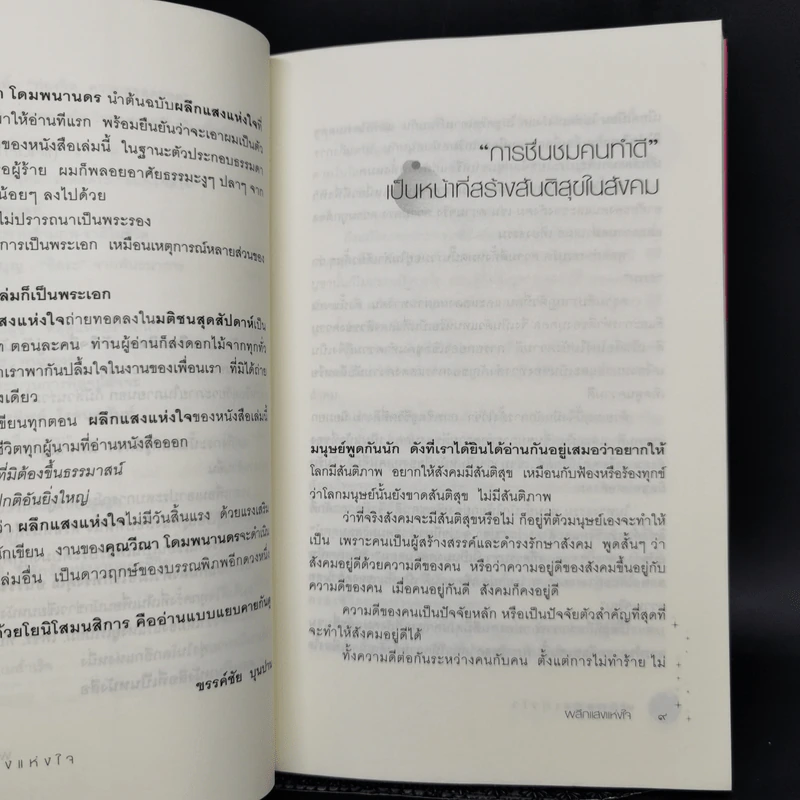 โดมพนานดร นำต้นฉบับผลึกแสงแห่งใจที่
มาให้อ่านที่แรก พร้อมยืนยันว่าจะเอาผมเป็นตัว
ของหนังสือเล่มนี้ ในฐานะตัวประกอบธรรมดา
ผู้ร้าย ผมก็พลอยอาศัยธรรมะงูๆ ปลาๆ จาก
น้อยๆ ลงไปด้วย
ไม่ปรารถนาเป็นพระรอง
การเป็นพระเอก เหมือนเหตุการณ์หลายส่วนของ
ก็เป็นพระเอก
แสงแห่งใจถ่ายทอดลงในมติชนสุดสัปดาห์เป็น
ตอนละคน ท่านผู้อ่านก็ส่งดอกไม้จากทุกทั่ว
เราพากันปลื้มใจในงานของเพื่อนเรา ที่มิได้ถ่าย
เดียว
เขียนทุกตอน ผลึกแสงแห่งใจของหนังสือเล่มนี้
ชีวิตทุกผู้นามที่อ่านหนังสือออก
ที่มิต้องขึ้นธรรมาสน์
ปกติอันยิ่งใหญ่
ว่า ผลึกแสงแห่งใจไม่มีวันสิ้นแรง ด้วยแรงเสริม
นักเขียน งานของคุณวีณา โดมพนานดรจะดำเนิน
เล่มอื่น เป็นดาวฤกษ์ของบรรณพิภพอีกดวงหนึ่ง
ด้วยโยนิโสมนสิการ คืออ่านแบบแยบคายกันดู
ขรรค์ชัย บุนปาน
งแห่งใจ
“การชื่นชมคนทำดี”
เป็นหน้าที่สร้างสันติสุขในสังคม
มนุษย์พูดกันนัก ดังที่เราได้ยินได้อ่านกันอยู่เสมอว่าอยากให้
โลกมีสันติภาพ อยากให้สังคมมีสันติสุข เหมือนกับฟ้องหรือร้องทุกข์
ว่าโลกมนุษย์นั้นยังขาดสันติสุข ไม่มีสันติภาพ
ว่าที่จริงสังคมจะมีสันติสุขหรือไม่ ก็อยู่ที่ตัวมนุษย์เองจะทำให้
เป็น เพราะคนเป็นผู้สร้างสรรค์และดำรงรักษาสังคม พูดสั้นๆ ว่า
สังคมอยู่ดีด้วยความดีของคน หรือว่าความอยู่ดีของสังคมขึ้นอยู่กับ
ความดีของคน เมื่อคนอยู่กันดี สังคมก็คงอยู่ดี
ความดีของคนเป็นปัจจัยหลัก หรือเป็นปัจจัยตัวสำคัญที่สุดที่
จะทำให้สังคมอยู่ดีได้
ทั้งความดีต่อกันระหว่างคนกับคน ตั้งแต่การไม่ทำร้าย ไม่
ผลึกแสงแห่งใจ ๙